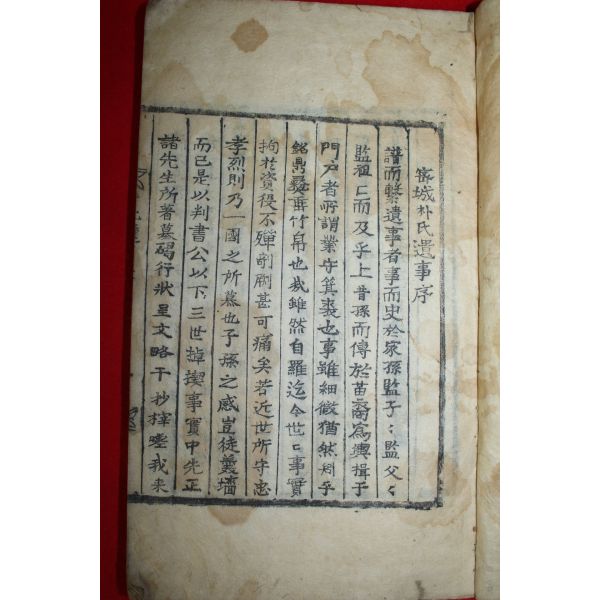 密城朴氏遺事序
譜而繫遺事者事而史於家孫監子〻監父〻
監祖〻而及乎上昔孫而傳於苗裔寫輿揖于
門戶者所謂業守箕裘也事雖細微猶然則乎
銘鼎彝垂竹帛也哉雖然自羅迄今世〻事實
拘於資役不殫剞劂甚可痛矣若近世所守忠
孝烈則乃一國之所慕也子孫之感豈徒羹墻
而已是以判書公以下三世掉楔事實中先正
諸先生所著墓碣行狀呈文略干抄擇噫我來